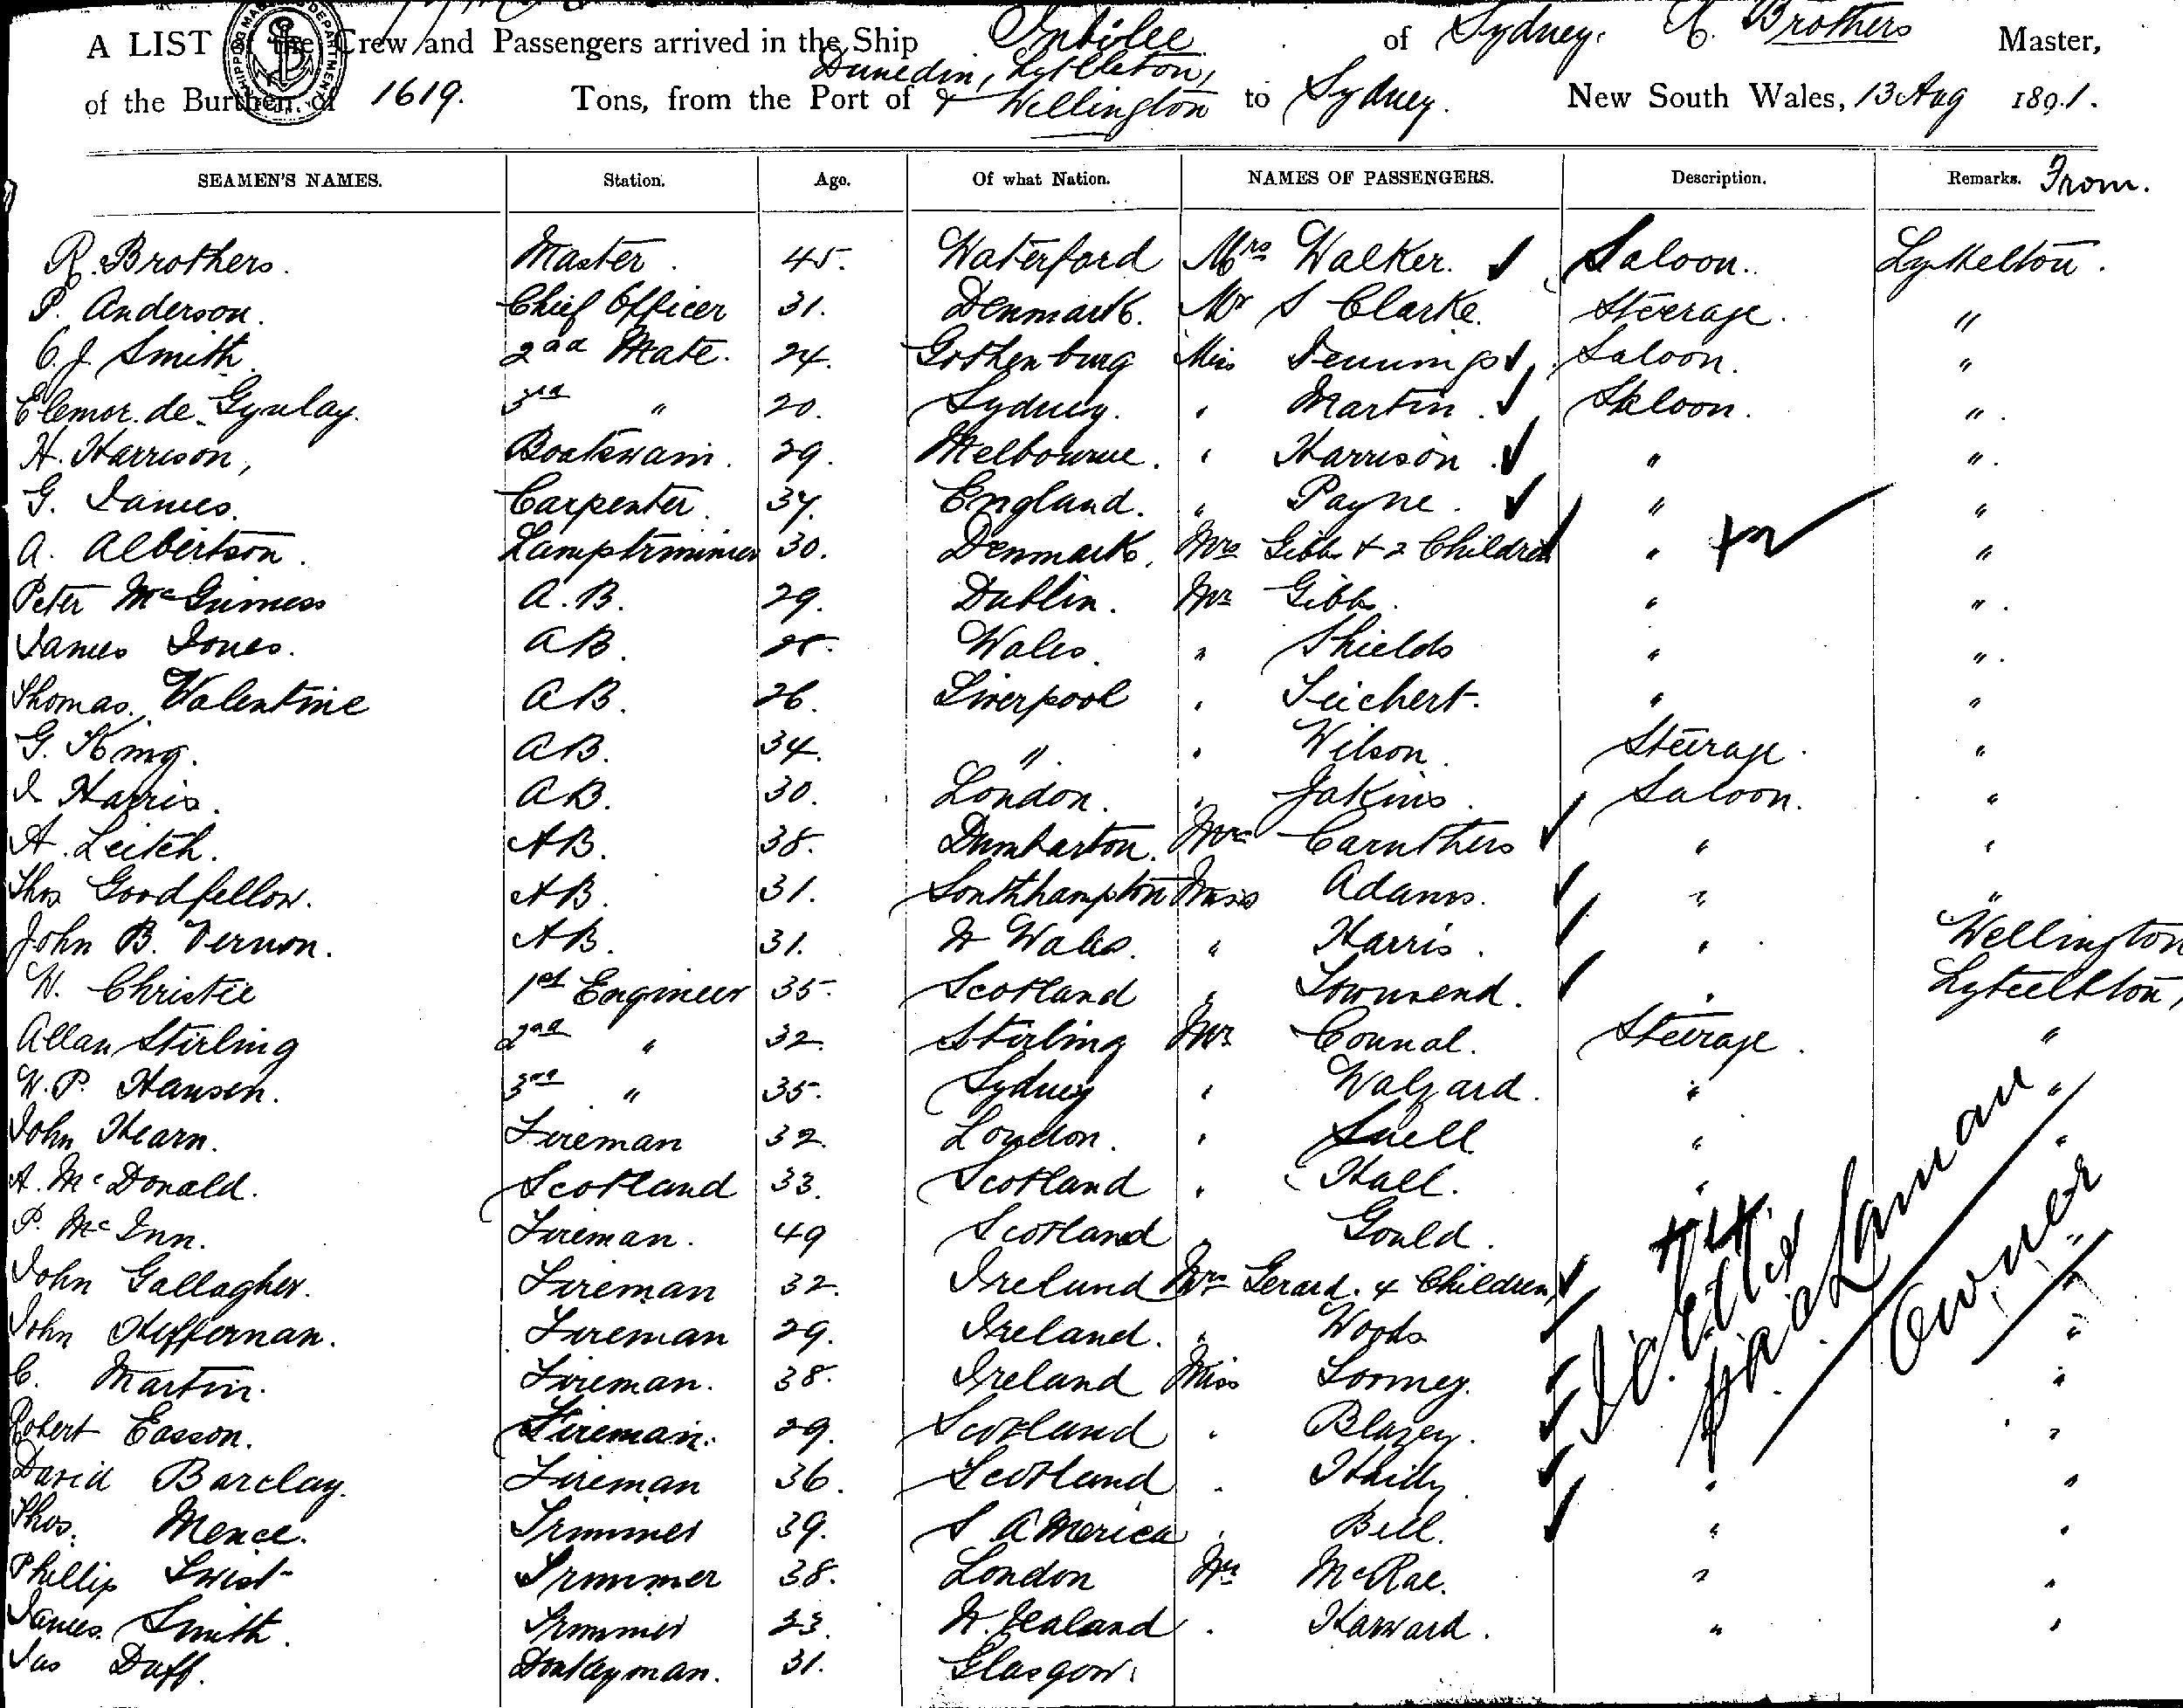 A LIST of the Crew and Passengers arrived in the Ship Jubilee of Sydney. R. Brothers Master,
Dunedin, Lyttleton,
of the Burthen of 1619. Tons, from the Port of & Wellington to Sydney. New South Wales, 13 Aug 1891.
SEAMEN'S NAMES. Station. Age. Of what Nation. NAMES OF PASSENGERS. Description. Remarks. From.
R. Brothers. Master. 45. Waterford Mrs Walker. Saloon. Lyttelton.
P. Anderson. Chief Officer 31. Denmark. Mr S Clarke. Steerage. "
C. J. Smith. 2nd Mate. 24. Gothenburg Miss Jennings Saloon. "
Elemor de Gyulay. 3rd " 20. Sydney. " Martin. Saloon. "
H. Harrison, Boatswain. 29. Melbourne. " Harrison. " "
G. James. Carpenter. 37. England. " Payne. " "
A. Albertson. Lamptrimmer 30. Denmark. Mrs Gibbs & 2 Children " "
Peter McGuiness A.B. 29. Dublin. Mr Gibbs. " "
James Jones. AB. 28. Wales. " Shields " "
Thomas Valentine AB. 26. Liverpool " Teichert. " "
G. King. AB. 34. " " Wilson. Steerage. "
J. Harris. AB. 30. London. " Jakins. Saloon. "
A. Leitch. AB. 38. Dumbarton. Mrs Caruthers " "
Thos Goodfellow. AB. 31. Southhampton Miss Adams. " "
John B. Vernon. AB. 31. N Wales. " Harris. " Wellington
W. Christie 1st Engineer 35. Scotland " Townsend. " Lyttelton,
Allan Stirling 2nd " 32. Stirling Mr Counal. Steerage. "
W. P. Hansen. 3rd " 35. Sydney " Walzard. " "
John Hearn. Fireman 32. London. " Snell " "
A. McDonald. Scotland 33. Scotland " Hall. " "
P. McInn. Fireman. 49 Scotland " Gould. "
John Gallagher. Fireman 32. Ireland Mrs Gerard. 4 Children, "
John Heffernan. Fireman 29. Ireland. " Woods "
C. Martin. Fireman. 38. Ireland Miss Toomey. "
Robert Easson. Fireman. 29. Scotland " Blazey. "
David Barclay. Fireman 36. Scotland " Haidy. " "
Thos. Mence. Trimmer 39. S America " Bell. " "
Phillip Twist Trimmer 38. London Mr McRae. " "
James Smith. Trimmer 23. N. Zealand " Harward. " "
Jas Duff. Donkeyman. 31. Glasgow.
Owner